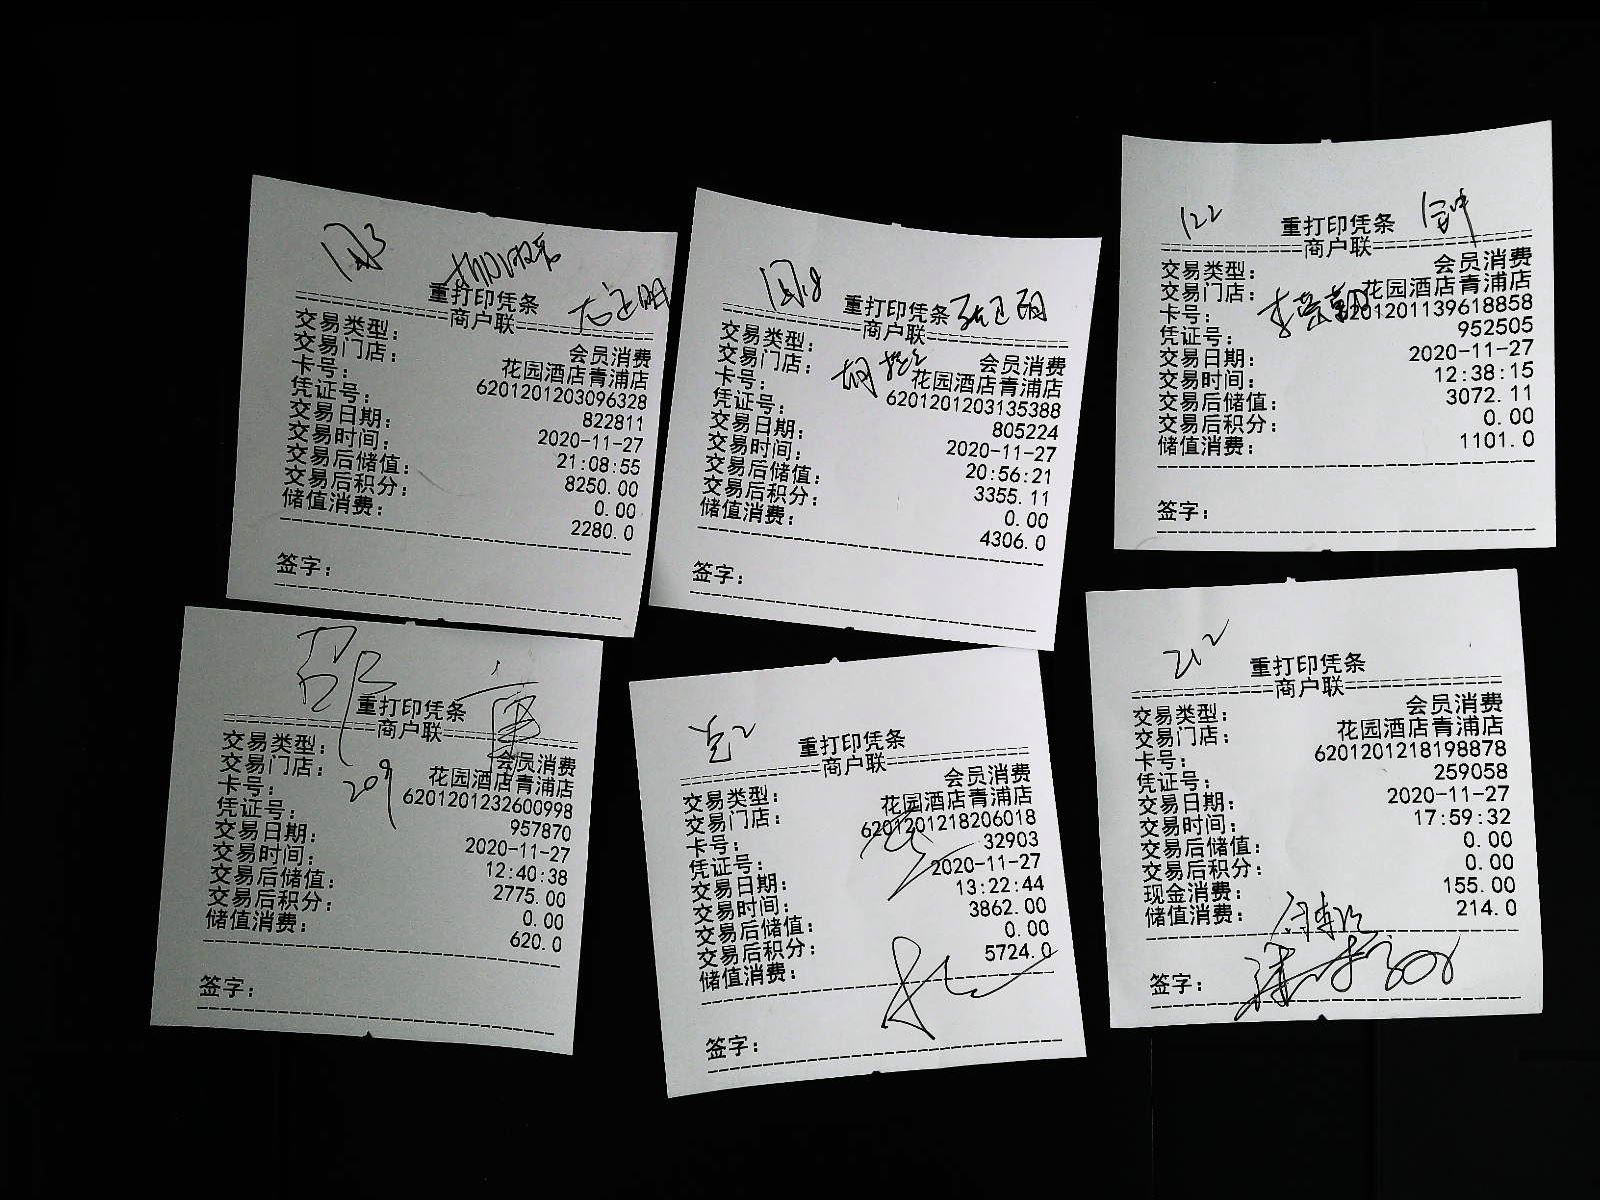 重打印凭条
商户联
交易类型：会员消费
交易门店：花园酒店青浦店
卡号：6201201203096328
凭证号：822811
交易日期：2020-11-27
交易时间：21:08:55
交易后储值：8250.00
交易后积分：0.00
储值消费：2280.0
签字：
重打印凭条
商户联
交易类型：会员消费
交易门店：花园酒店青浦店
卡号：6201201203135388
凭证号：805224
交易日期：2020-11-27
交易时间：20:56:21
交易后储值：3355.11
交易后积分：0.00
储值消费：4306.0
签字：
122
重打印凭条
商户联
交易类型：会员消费
交易门店：花园酒店青浦店
卡号：201201139618858
凭证号：952505
交易日期：2020-11-27
交易时间：12:38:15
交易后储值：3072.11
交易后积分：0.00
储值消费：1101.0
签字：
重打印凭条
商户联
交易类型：会员消费
交易门店：花园酒店青浦店
209
卡号：6201201232600998
凭证号：957870
交易日期：2020-11-27
交易时间：12:40:38
交易后储值：2775.00
交易后积分：0.00
储值消费：620.0
签字：
重打印凭条
商户联
交易类型：会员消费
交易门店：花园酒店青浦店
卡号：6201201218206018
凭证号：32903
交易日期：2020-11-27
交易时间：13:22:44
交易后储值：3862.00
交易后积分：0.00
储值消费：5724.0
签字：
212
重打印凭条
商户联
交易类型：会员消费
交易门店：花园酒店青浦店
卡号：6201201218198878
凭证号：259058
交易日期：2020-11-27
交易时间：17:59:32
交易后储值：0.00
交易后积分：0.00
现金消费：155.00
储值消费：214.0
签字：